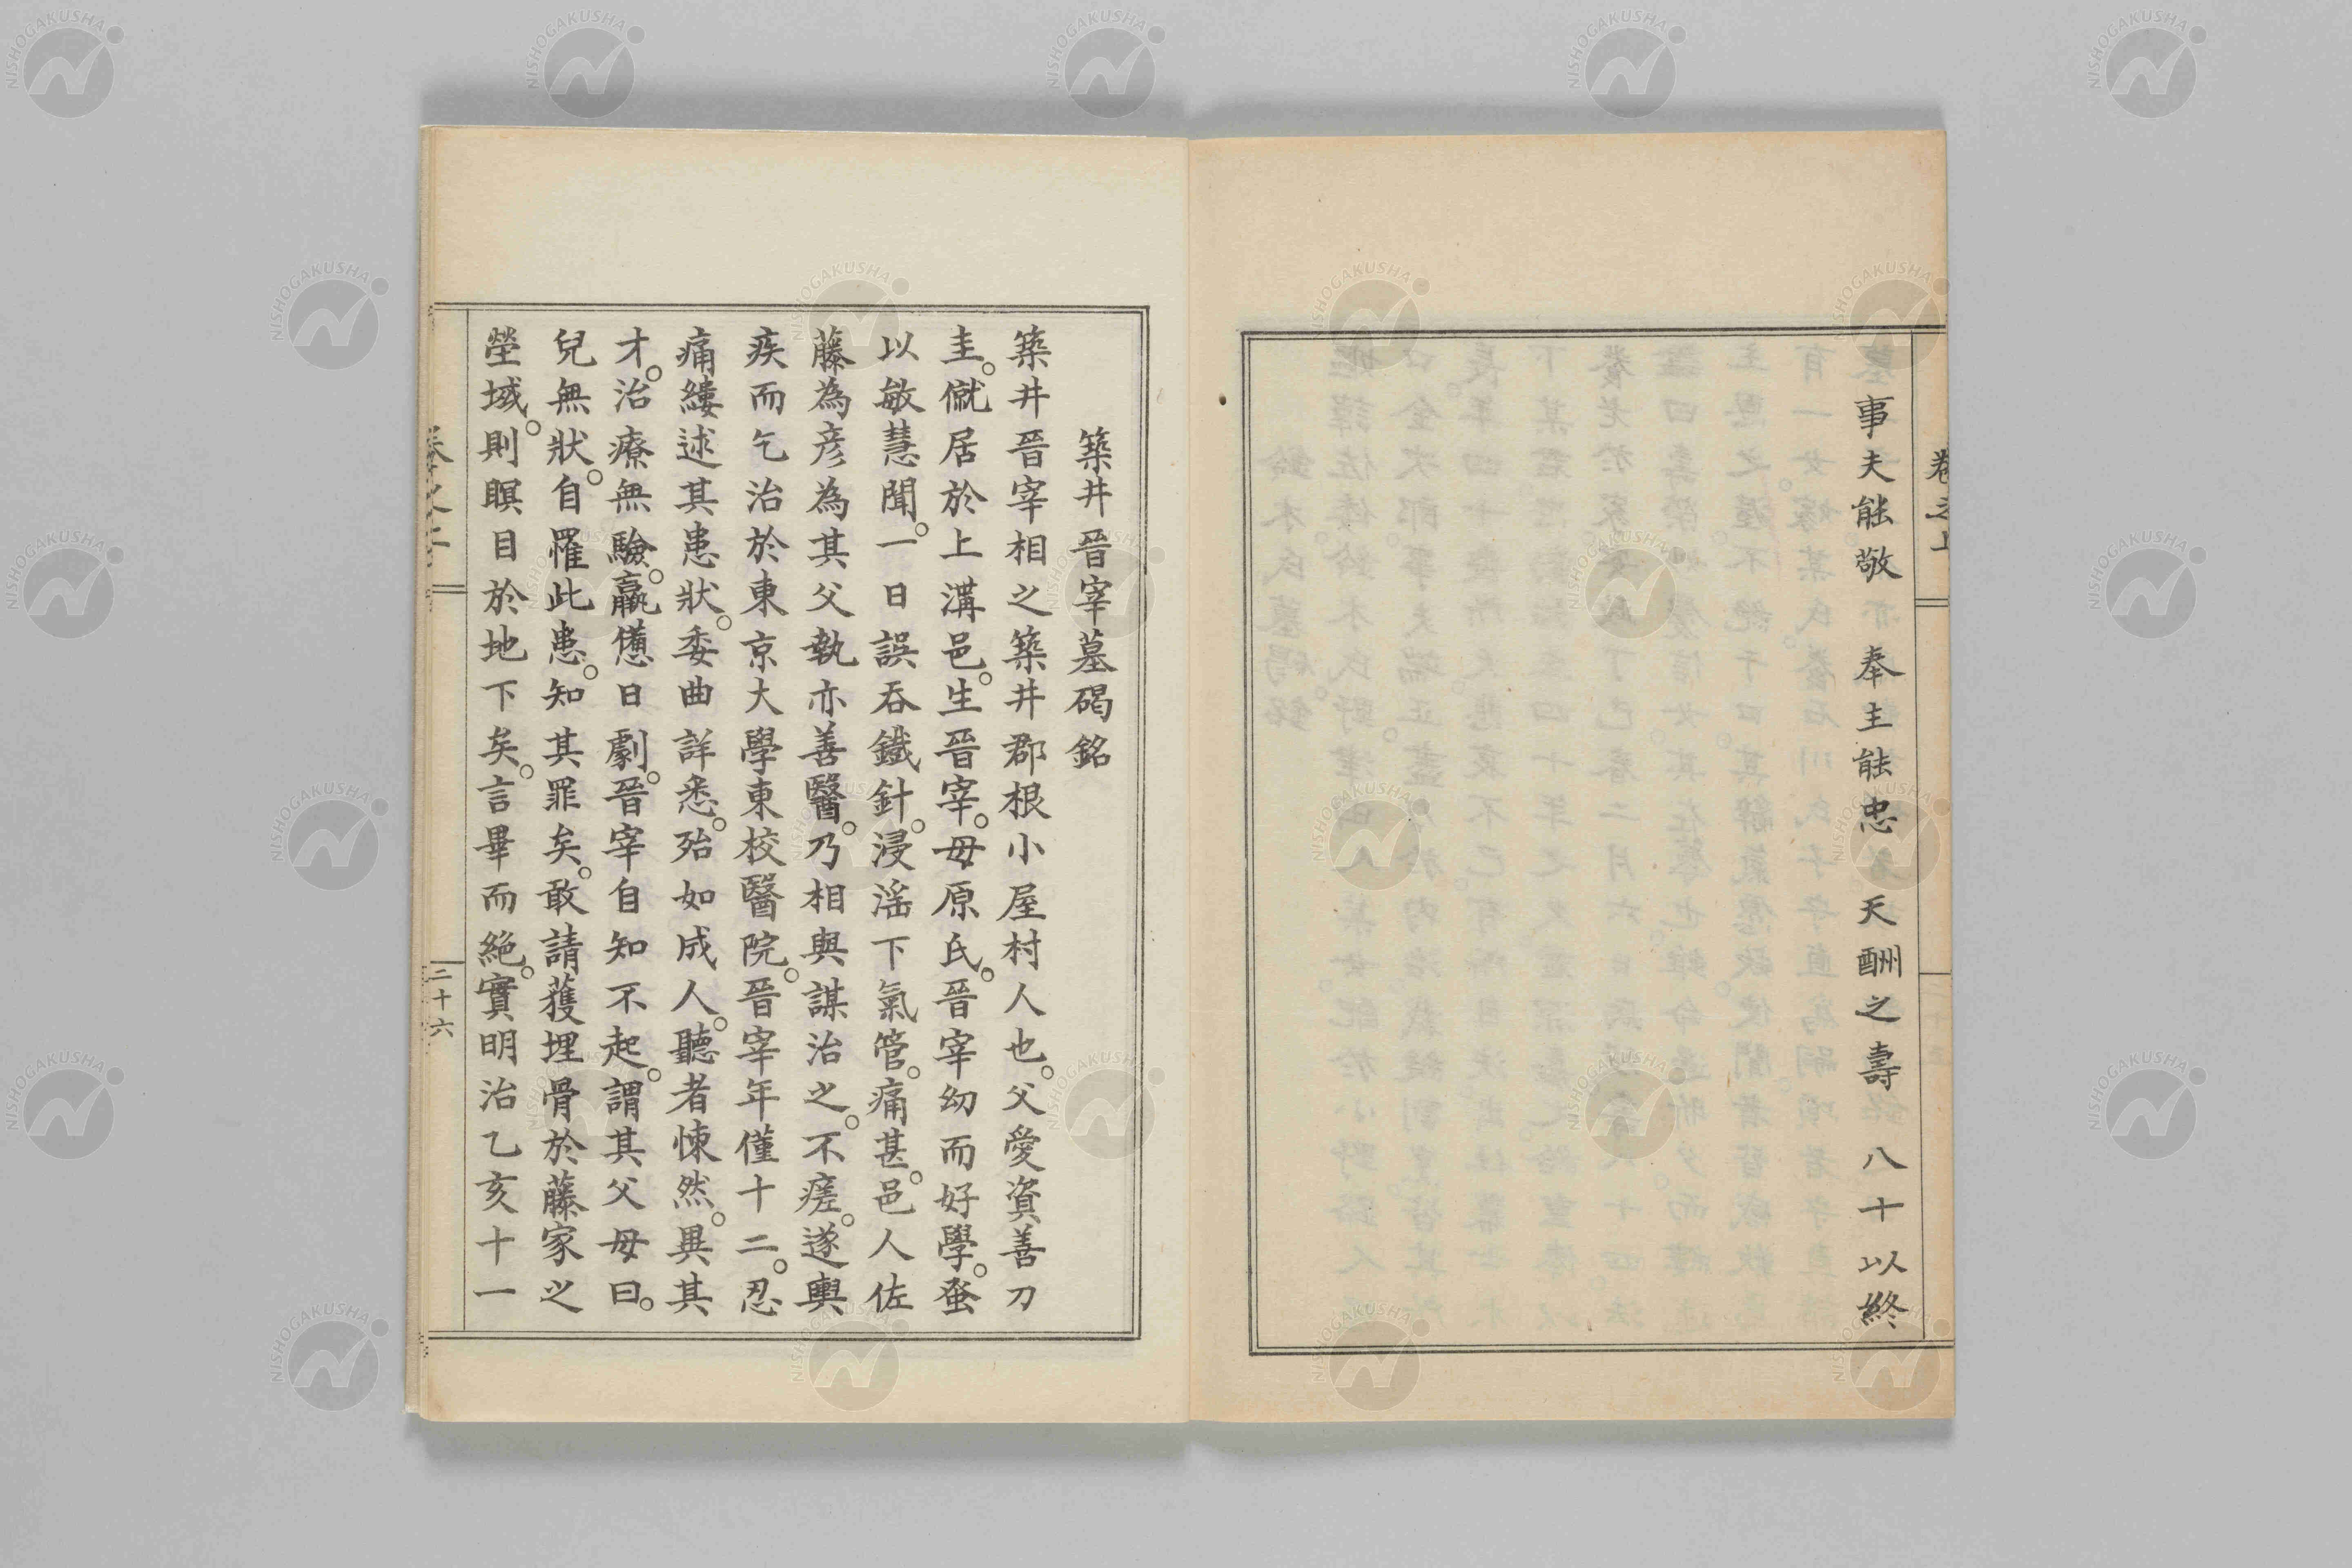 卷之上
事夫能敬　奉主能忠　天酬之壽　八十以終
築井晉宰墓碣銘
築井晉宰相之築井郡根小屋村人也。父愛資善刀
圭。僦居於上溝邑。生晉宰。母原氏。晉宰幼而好學。蚤
以敏慧聞。一日誤吞鐵針。浸淫下氣管。痛甚。邑人佐
藤為彦為其父執亦善醫。乃相與謀治之。不瘥。遂輿
疾而乞治於東京大學東校醫院。晉宰年僅十二。忍
痛縷述其患狀。委曲詳悉。殆如成人。聽者悚然。異其
才。治療無驗。羸憊日劇。晉宰自知不起。謂其父母曰。
兒無狀。自罹此患。知其罪矣。敢請獲埋骨於藤家之
塋域。則瞑目於地下矣。言畢而絕。實明治乙亥十一
二十六
NISHOGAKUSHA